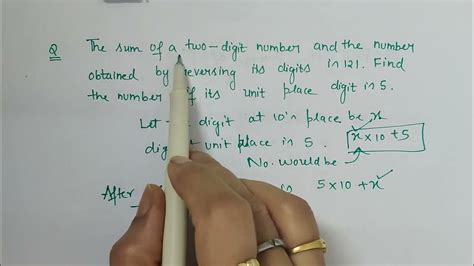 Q The sum of a two-digit number and the number
obtained by reversing its digits is 121. Find
the number if its unit place digit is 5.
Let digit at 10's place be x
digit unit place is 5. x×10+5
No. would be
After 5×10+x